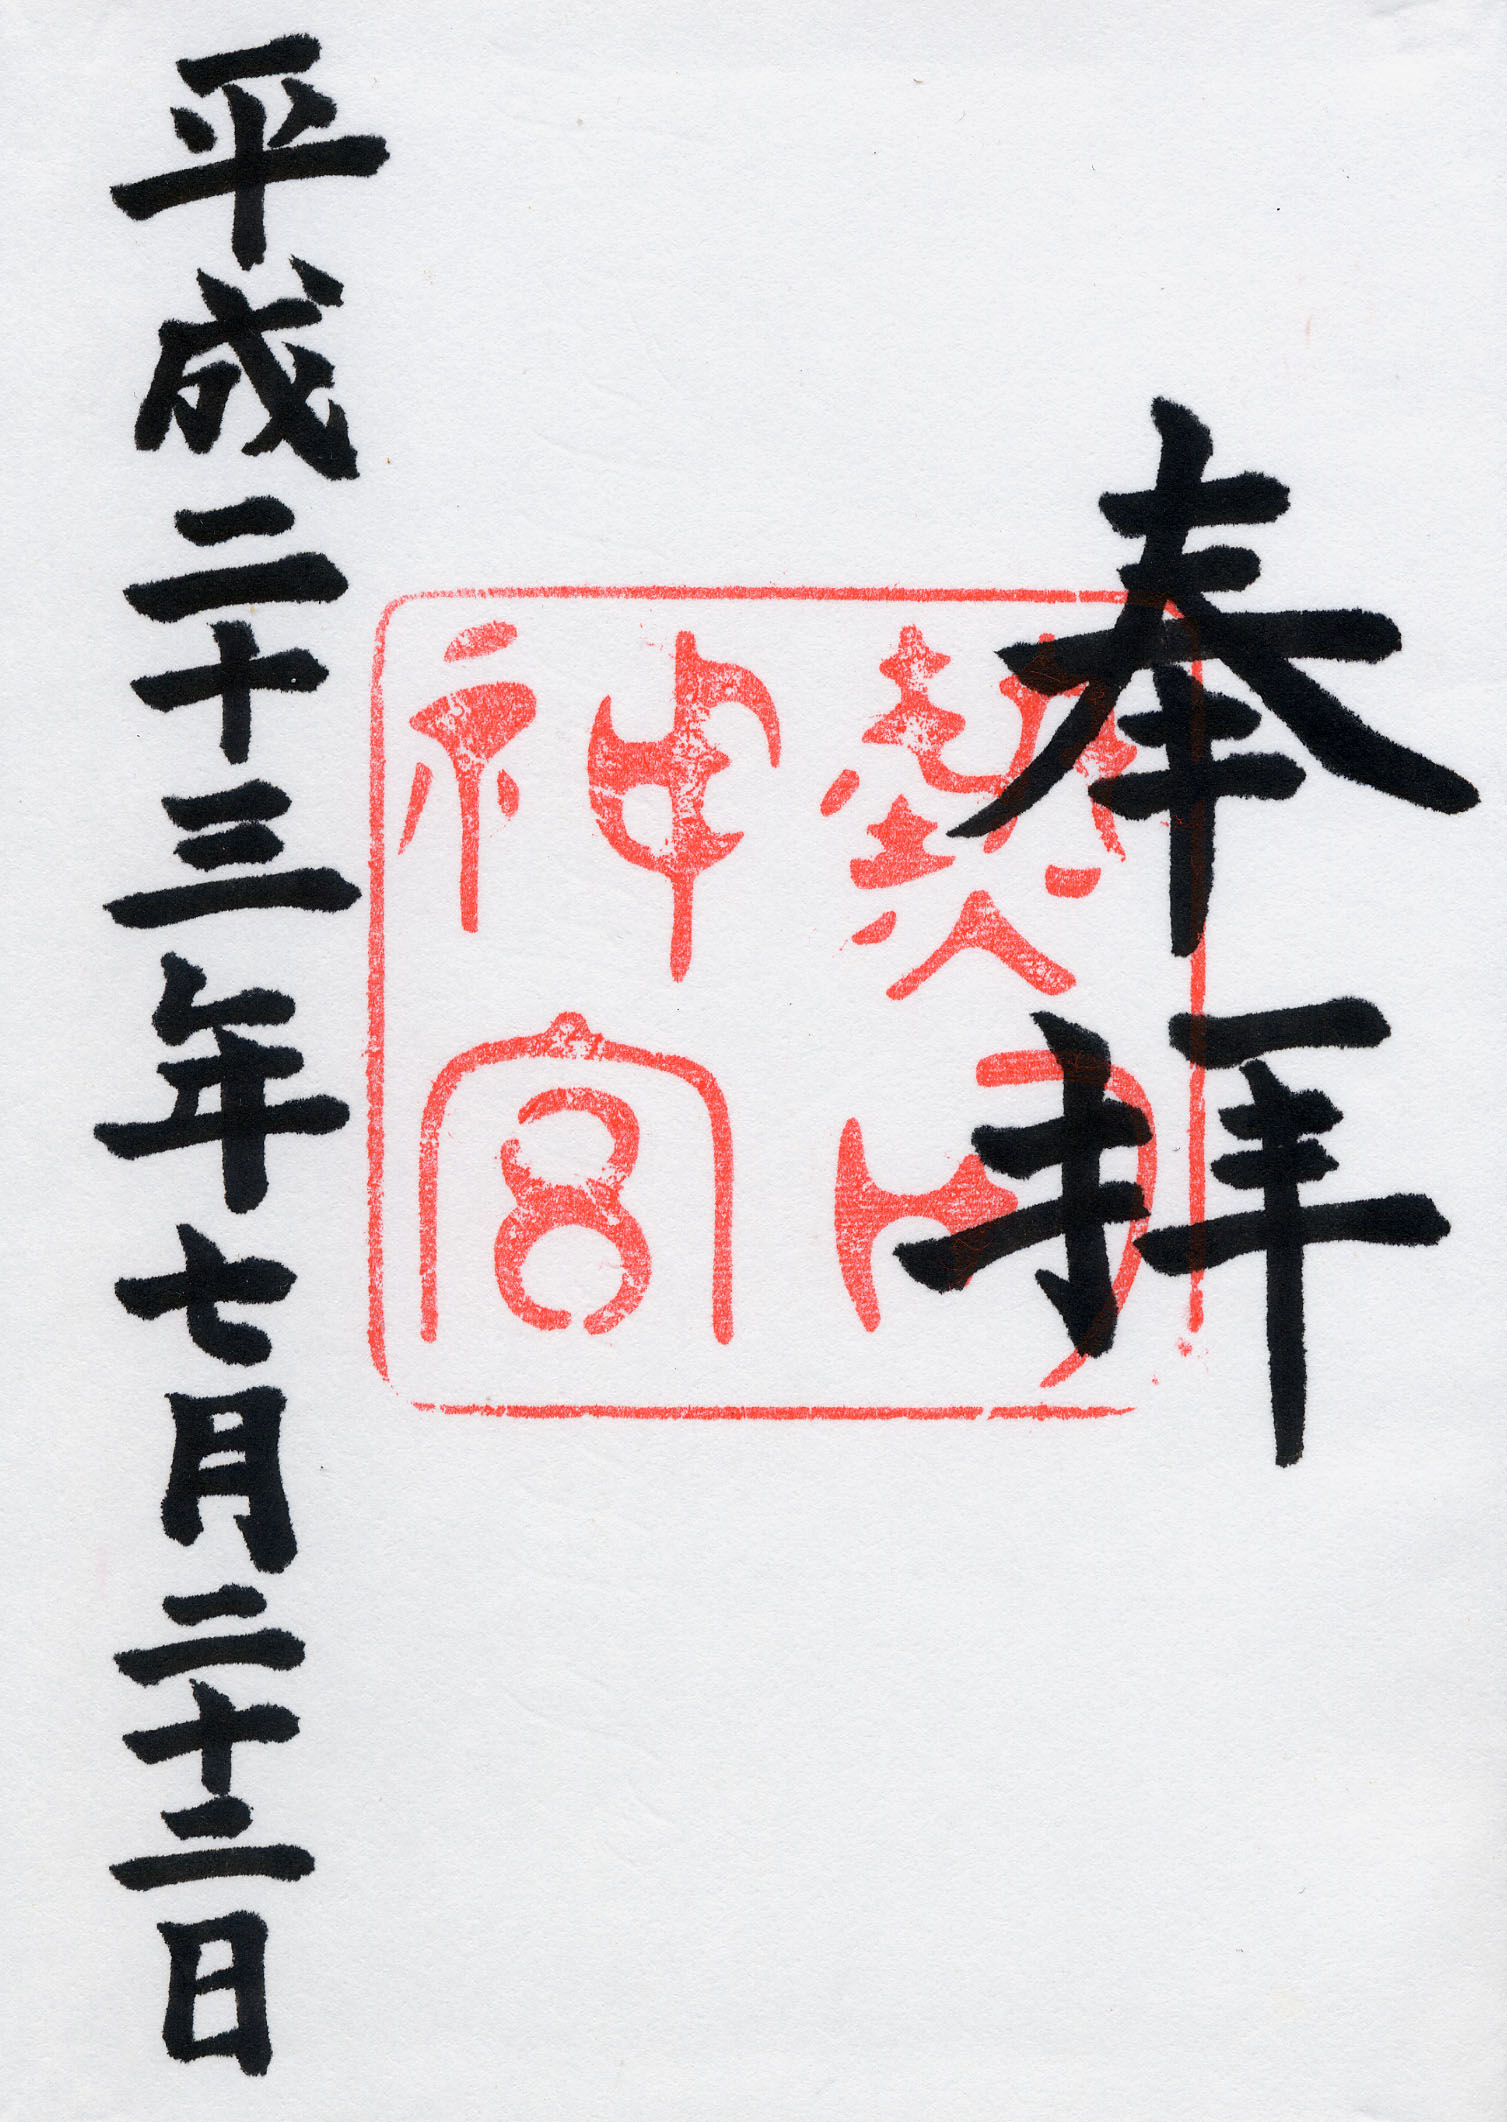 奉拝
熱田
神宮
平成二十三年七月二十二日